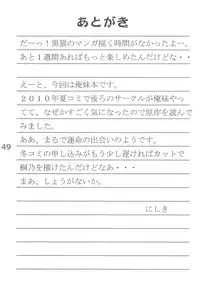 あとがき
だーっ！黒猫のマンガ描く時間がなかったよー、
あと１週間あればもっと楽しめたんだけどな・・
えーと、今回は俺妹本です。
２０１０年夏コミで後ろのサークルが俺妹やっ
てて、なぜかすごく気になったので原作を読んで
みました。
ああ、まるで運命の出会いのようです。
冬コミの申し込みがもう少し遅ければカットで
桐乃を描けたんだけどなあ・・・
まあ、しょうがないか。
にしき
49